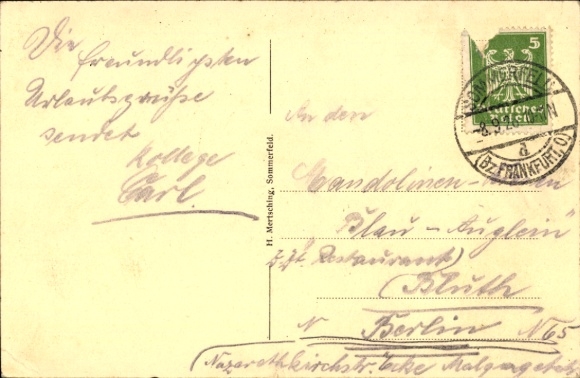 Die
freundlichsten
Urlaubsgrüße
sendet
Kollege
Carl.
H. Mertsching, Sommerfeld.
5
Deutsches
Reich
(Bz. FRANKFURT, O.)
An den
Mandolinen-
Blau-Äuglein
z. Zt. Restaurant
(Bluth
N Berlin N65
Nazarethkirchstr. Ecke